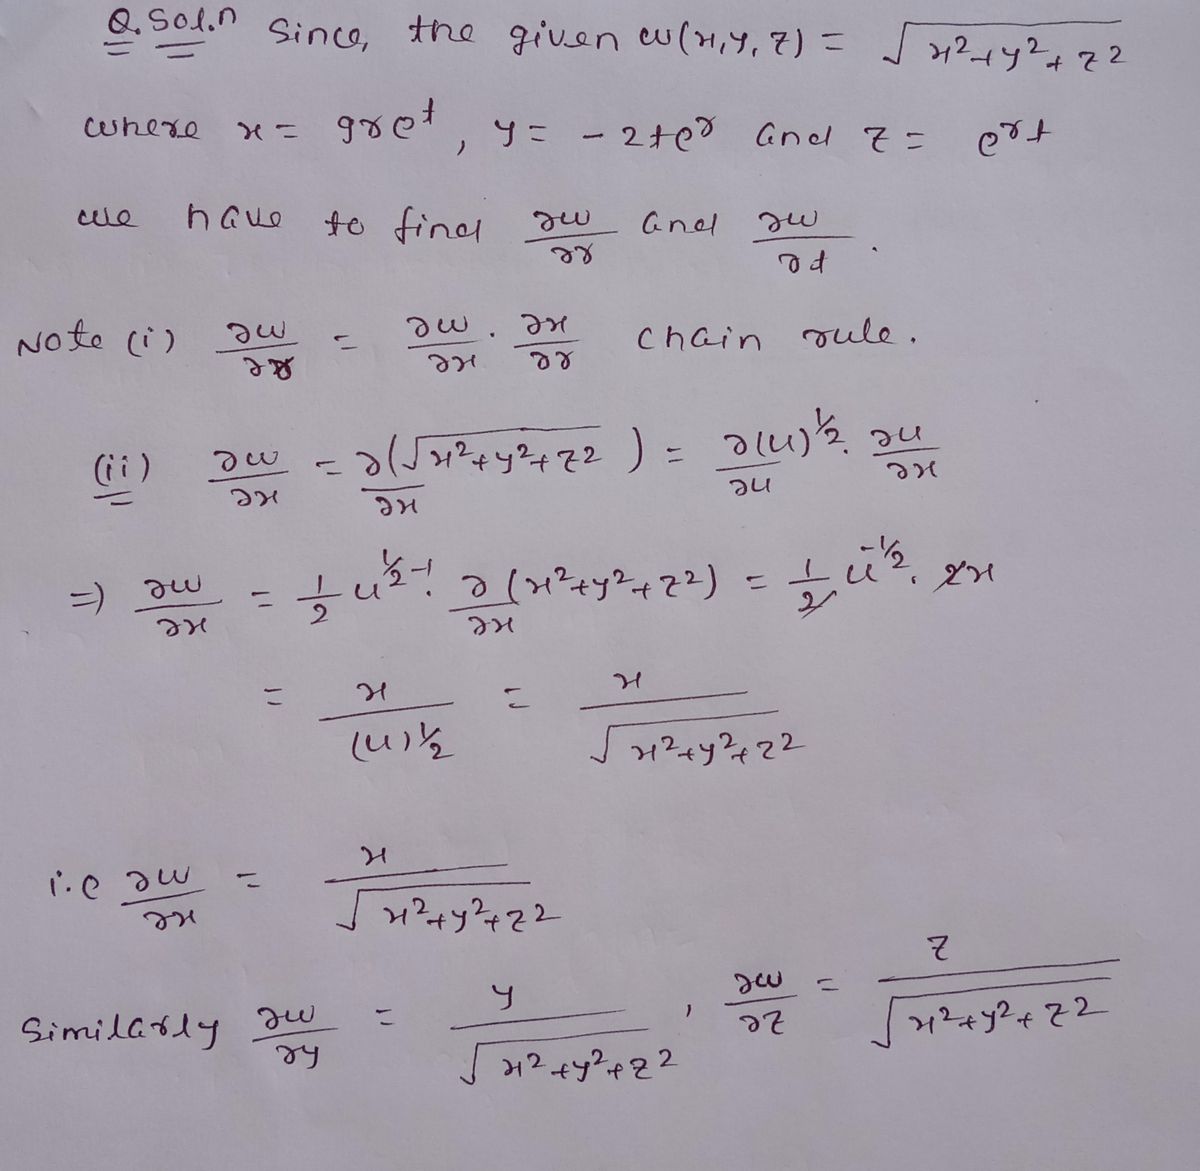 Q. Sol.n Since, the given w(x,y,z) = √x²+y²+z²
where x = 9ret, y = - 2ter and z = ert
we have to find ∂w/∂r and ∂w/∂t.
Note (i) ∂w/∂r = ∂w/∂x . ∂x/∂r chain rule.
(ii) ∂w/∂x = ∂(√x²+y²+z²)/∂x = ∂(u)½/∂u . ∂u/∂x
⇒ ∂w/∂x = 1/2 u½-1 . ∂(x²+y²+z²)/∂x = 1/2 u-½ . 2x
= x/(u)½ = x/√x²+y²+z²
i.e ∂w/∂x = x/√x²+y²+z²
Similarly ∂w/∂y = y/√x²+y²+z² , ∂w/∂z = z/√x²+y²+z²